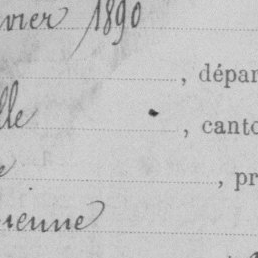 vier 1890
, dépar
lle , canto
e , pr
ienne